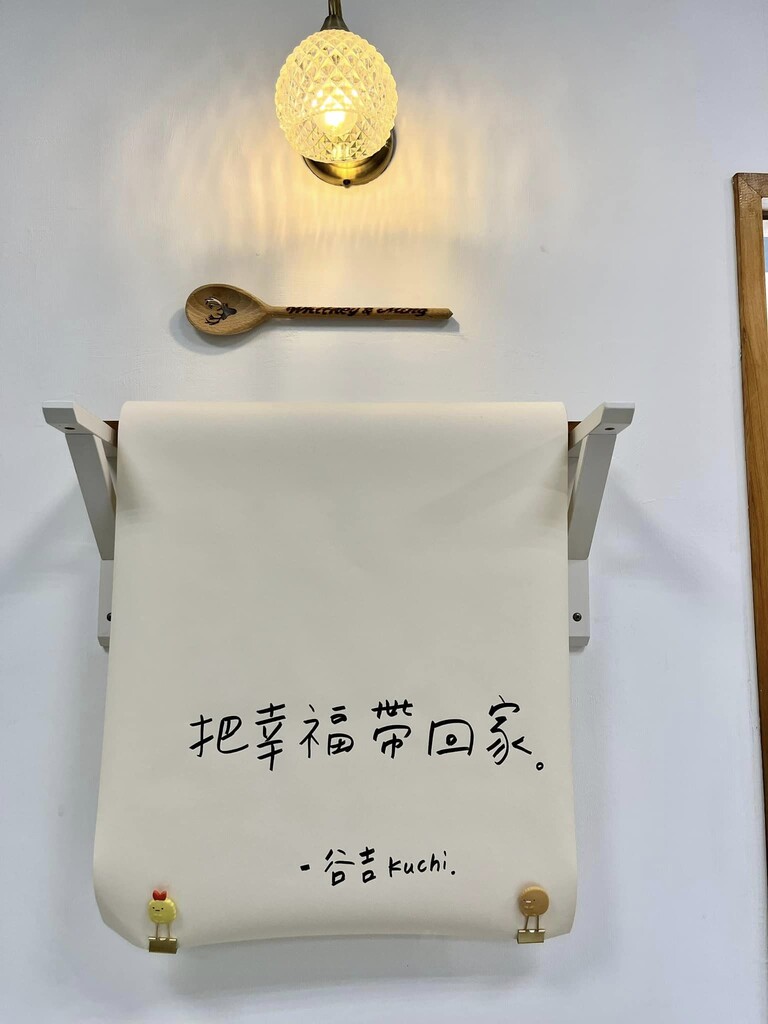 Whitney & Ming
把幸福帶回家。
-谷吉 kuchi.